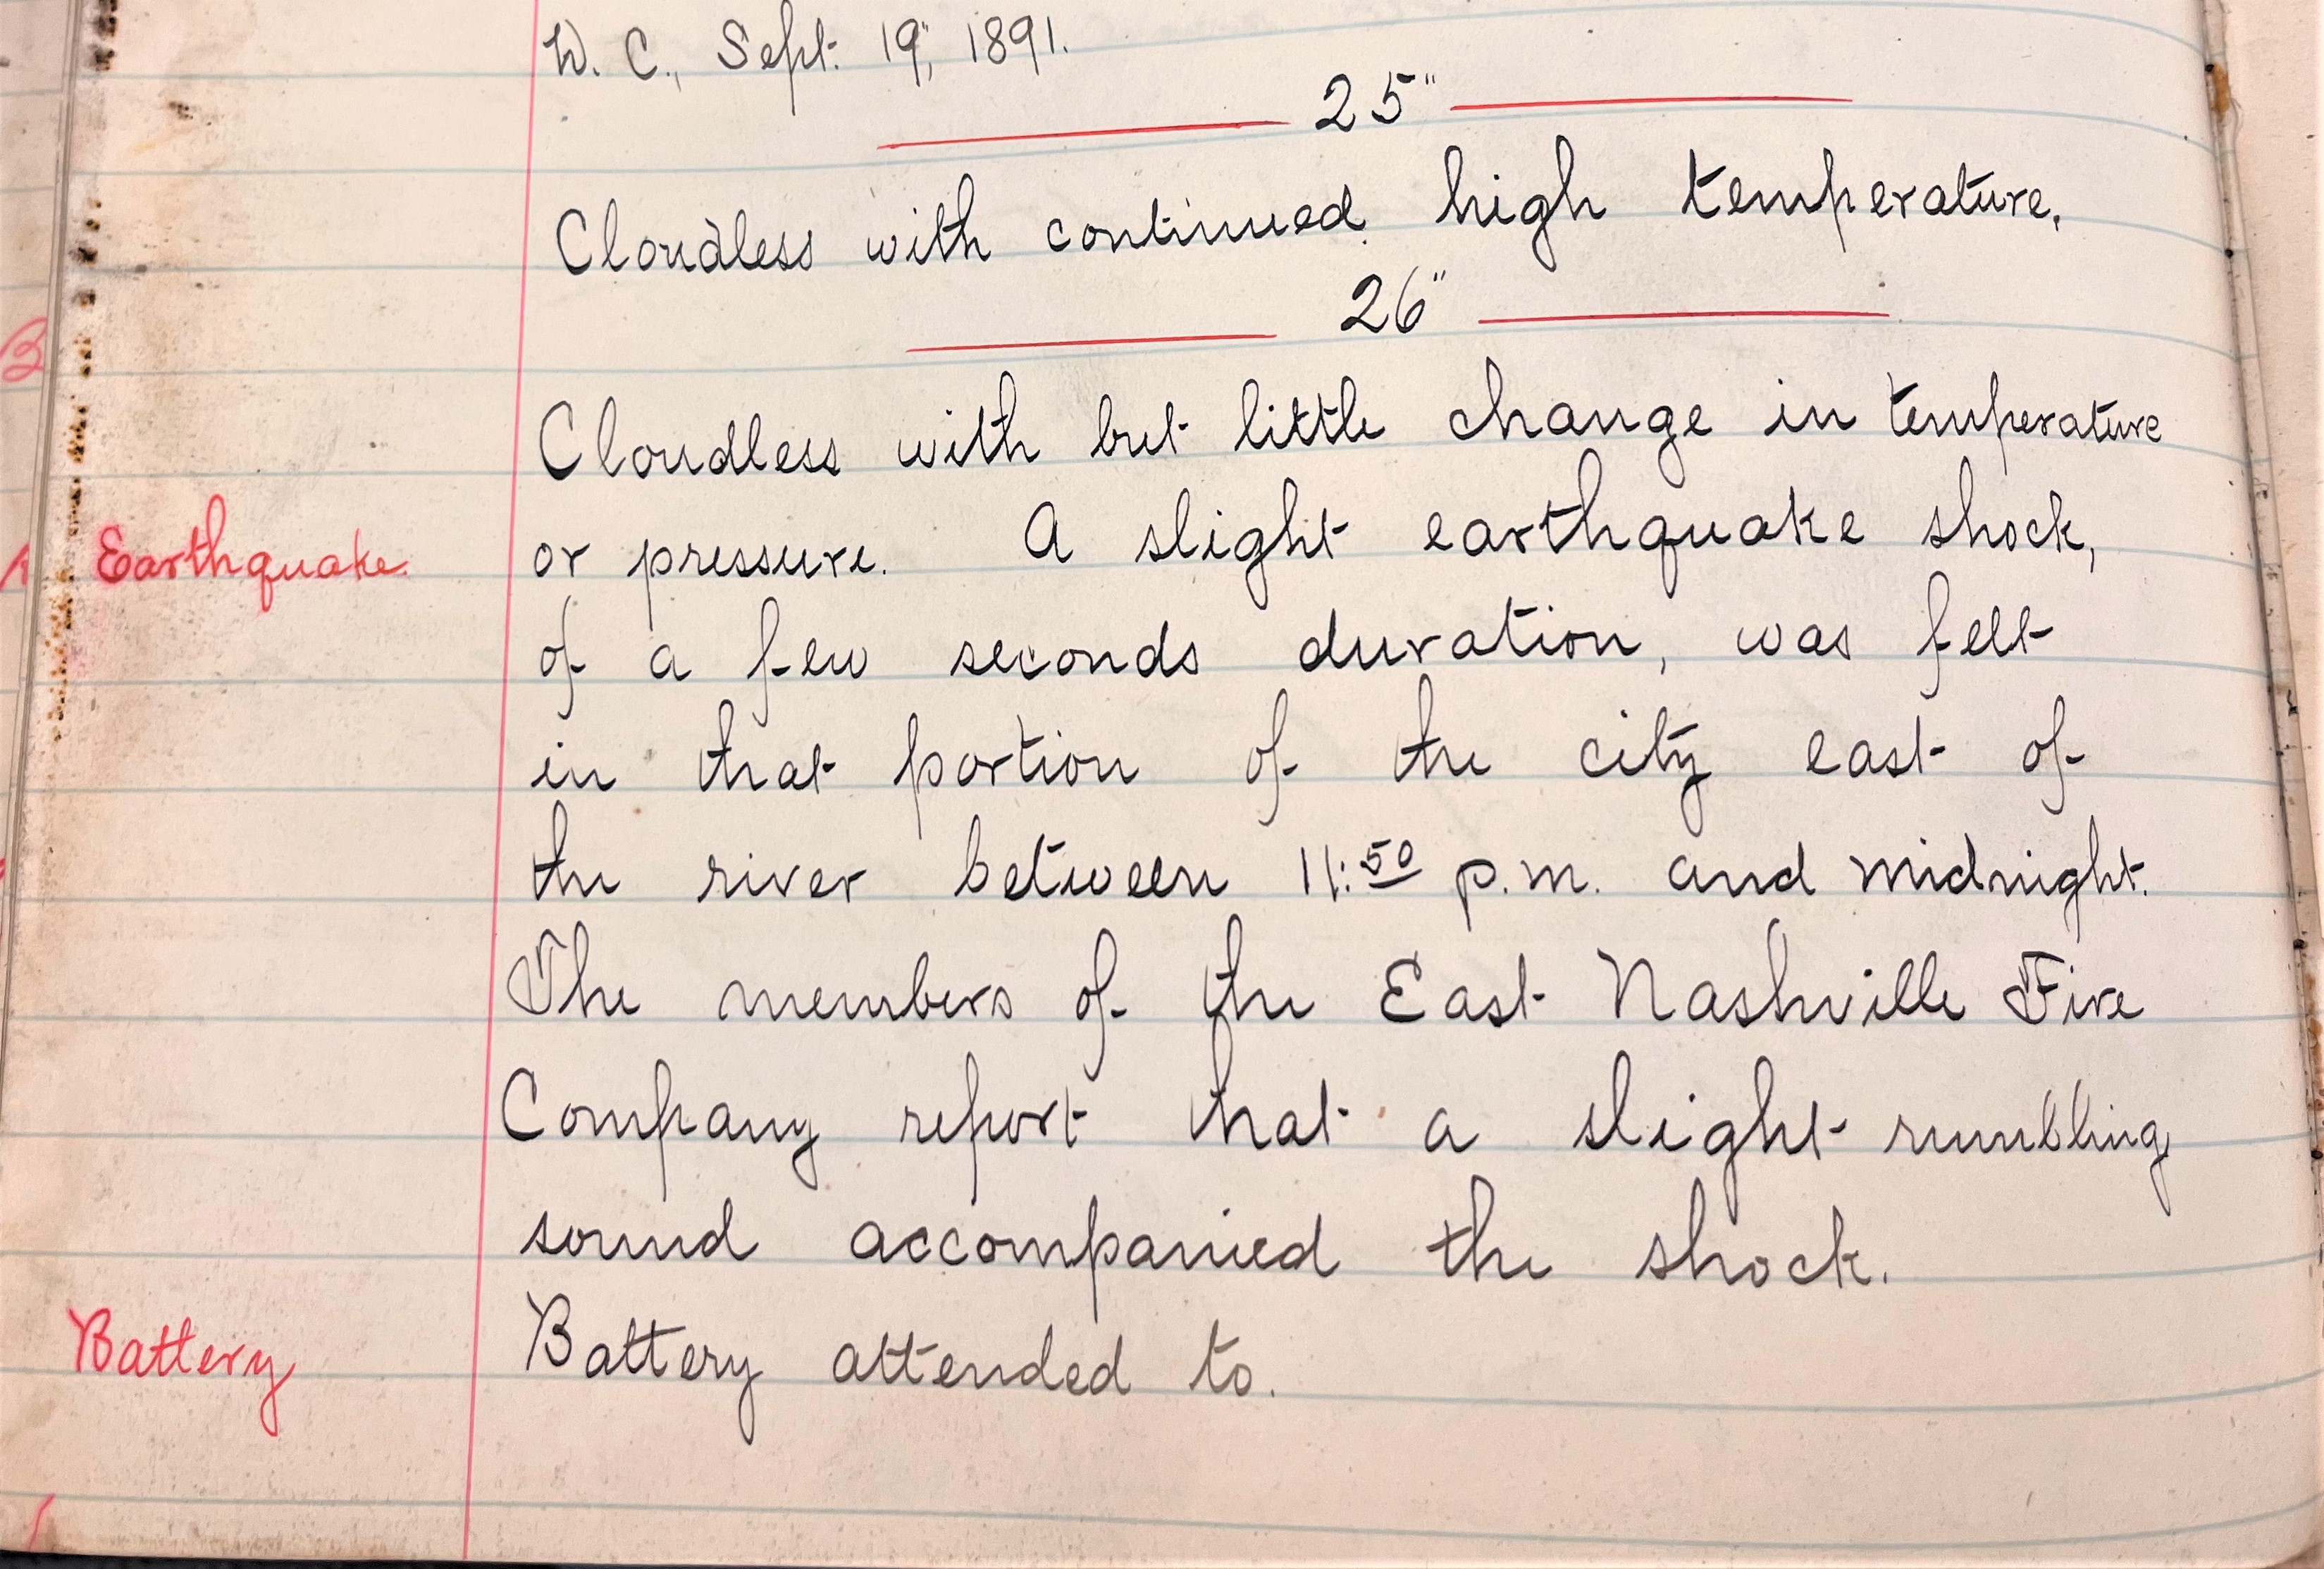 W. C., Sept. 19", 1891.
25"
Cloudless with continued high temperature,
26"
Cloudless with but little change in temperature
Earthquake or pressure. A slight earthquake shock,
of a few seconds duration, was felt
in that portion of the city east of
the river between 11:50 p.m. and midnight.
The members of the East Nashville Fire
Company report that a slight rumbling
sound accompanied the shock.
Battery Battery attended to.